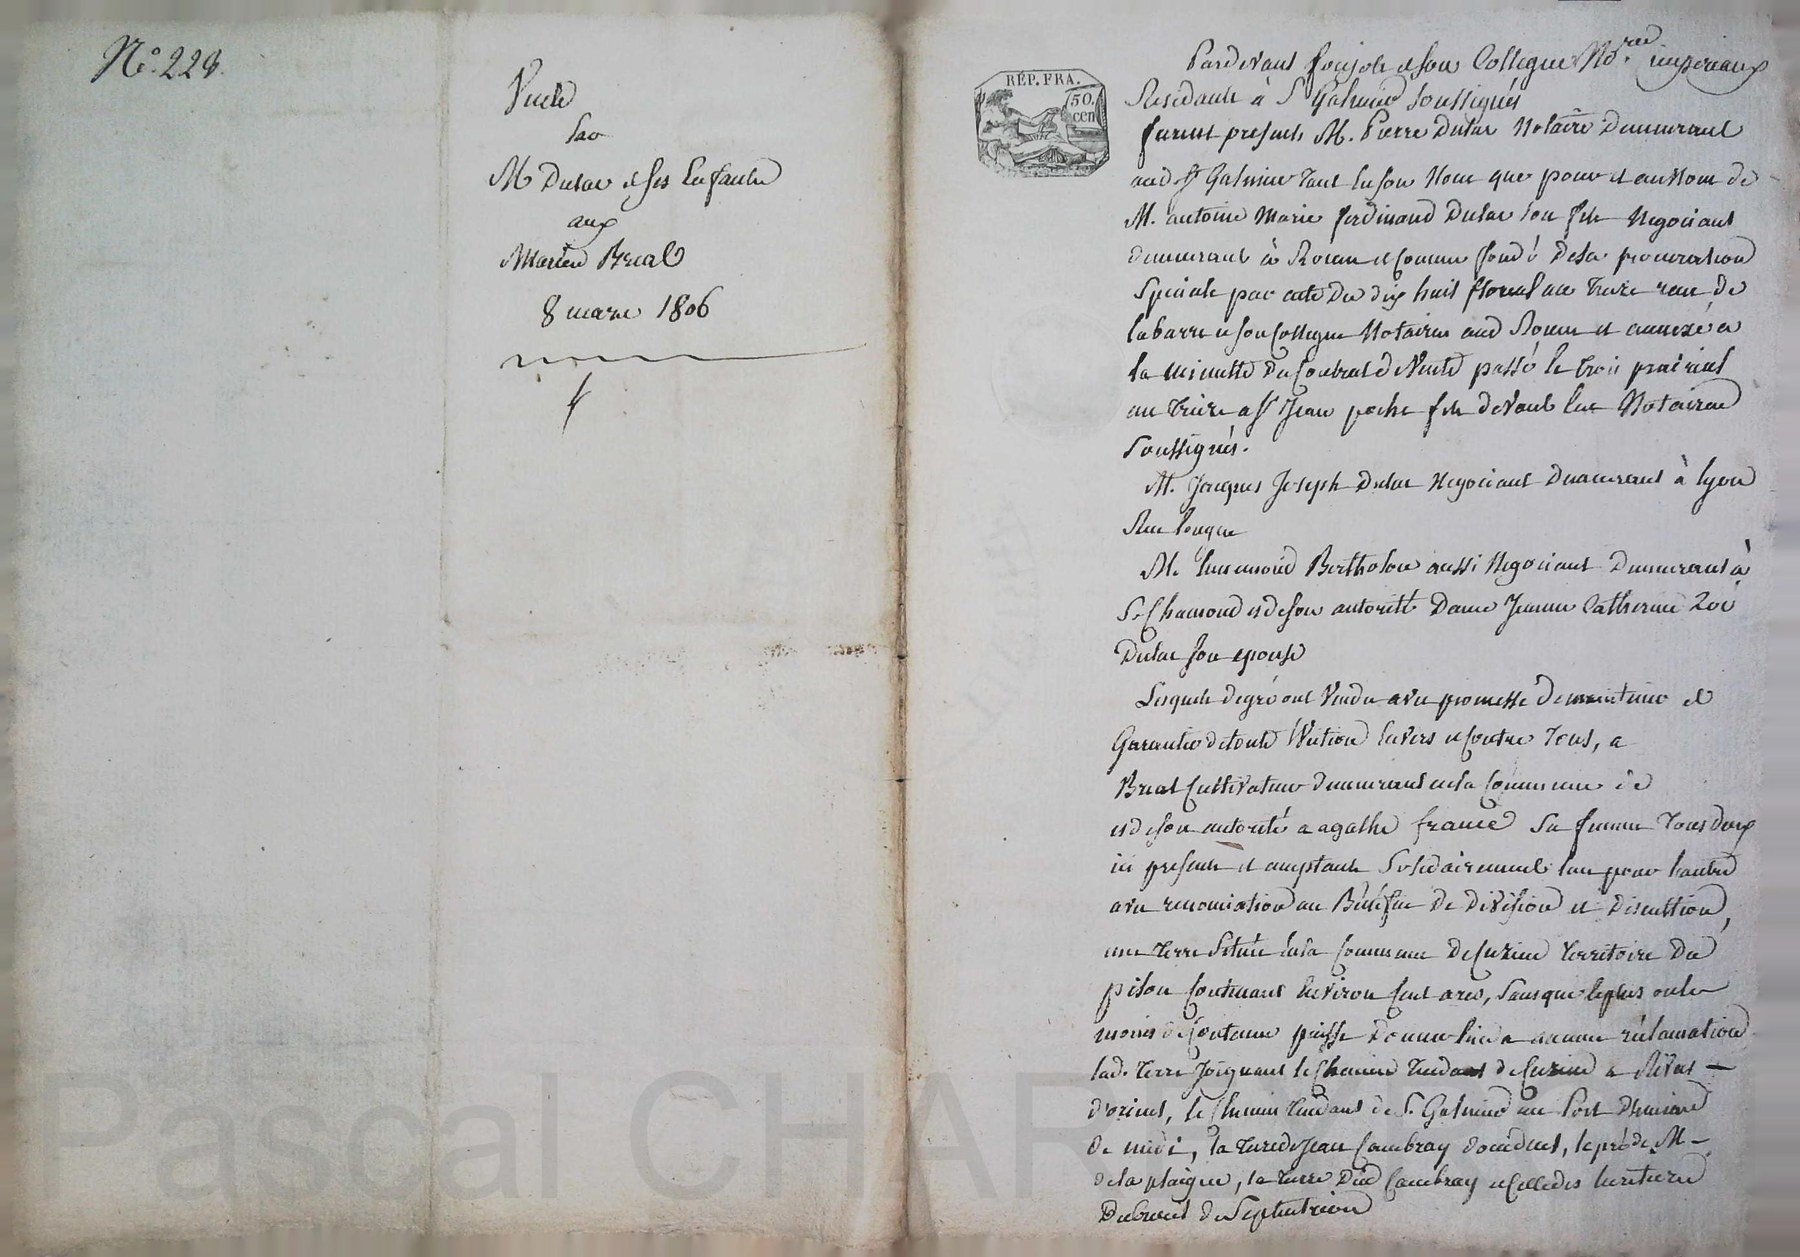 N° 228.
Vente
par
M Dulac et ses Enfants
aux
Mariés Breat
8 mars 1806
RÉP. FRA.
50.
cen
Pardevant et son Collegue Nores imperiaux
Residants à St Galmier soussignés
furent presents M. Pierre Dulac Notaire Demeurant
aud. St Galmier tant en son Nom que pour et au Nom de
M. antoine Marie ferdinand Dulac son fils Negociant
demeurant à Rouen et Comme fondé de sa procuration
Speciale par acte du dix huit floreal an treize reçu de
labarre et son Collegue Notaires aud Rouen et annexé a
la minutte du Contrat de Vente passé le trois prairial
an treize a St Jean poche fils devant les Notaires
soussignés.
M. Jacques Joseph Dulac Negociant Demeurant à lyon
Rue longue
M. Ennemond Bertholon aussi Negociant Demeurant à
St Chamond et de son autorité Dame Jeanne Catherine Zoé
Dulac son epouse
Lesquels de gré ont Vendu avec promesse de maintenir et
Garantir de toute Eviction Envers et Contre Tous, a
Breat Cultivateur demeurant en la Commune de
et de son autorité a agathe france sa femme Tous deux
ici presents et acceptants Solidairement l'un pour l'autre
avec renonciation au Bénéfice de Division et Discution,
une terre Située en la Commune de Cuzieu territoire Du
pilon Contenant Environ Cent ares, sans que le plus ou le
moins de Contenue puisse Donner lieu a aucune réclamation
lad. terre Joignant le Chemin tendant de Cuzieu a Rivas —
d'orient, le Chemin tendant de St Galmier au Port
de midi, la terre de Jean Combray d'occident, le pré de M —
de la plaigne, la terre Dud Combray et Celle des heritiers
Dubreuil de Septentrion
Pascal CHAR